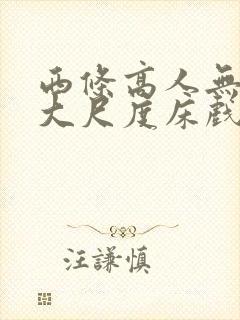 西條高人無
大尺度床戲
汪謙慎